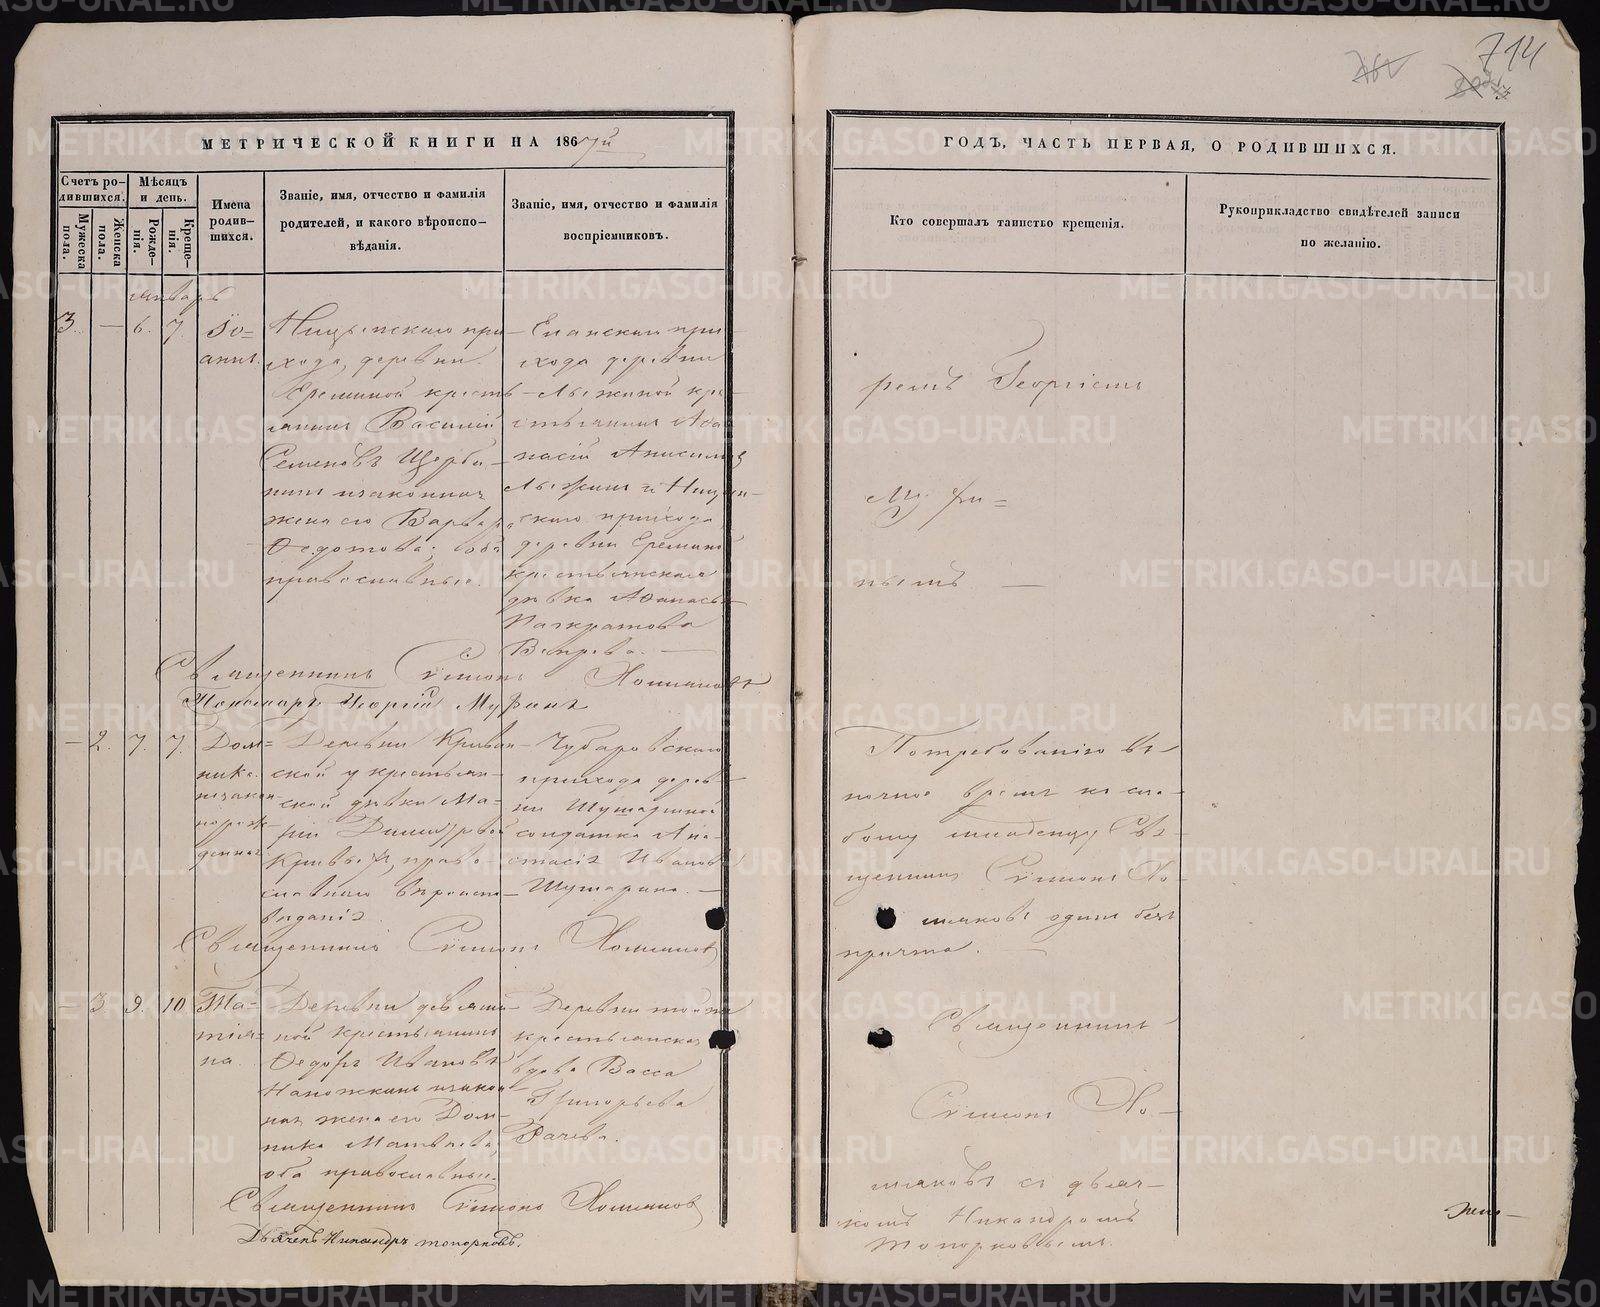 714
МЕТРИЧЕСКОЙ КНИГИ НА 1867й
ГОДЪ, ЧАСТЬ ПЕРВАЯ, О РОДИВШИХСЯ.
Счетъ родившихся.
Мужеска пола.
Женска пола.
Мѣсяцъ и день.
Рожденія.
Крещенія.
Имена родившихся.
Званіе, имя, отчество и фамилія
родителей, и какого вѣроиспо-
вѣданія.
Званіе, имя, отчество и фамилія
воспріемниковъ.
Кто совершалъ таинство крещенія.
Рукоприкладство свидѣтелей записи
по желанію.
Январь
3. — 6. 7.
Іо=
аннъ.
Ницынскаго при-
хода, деревни
Ереминой кресть-
янинъ Василій
Семеновъ Щерба-
нинъ и законная
жена его Варвара
Ѳедотова; оба
православные.
Еланскаго при-
хода деревни
Лыжиной кре-
стьянинъ Аѳа-
насій Анисимовъ
Лыжинъ и Ницын-
скаго прихода
деревни Ереминой
крестьянская
дѣвка Аѳанасья
Панкратова
Вепрева. —
ремъ Георгіемъ
Муфи=
нымъ —
Священникъ Сѵмеонъ Хомяковъ
Пономарь Георгій Муфинъ
— 2. 7. 7.
Дом=
ника.
незакон
норож-
денная
Деревни Кривин-
ской у крестьян-
ской дѣвки Ма-
ріи Димитріевой
Кривыхъ, право-
славнаго вѣроиспо-
вѣданія
Чубаровскаго
прихода дерев-
ни Шумариной
солдатка Ана-
стасія Иванова
Шумарина. —
По требованію въ
ночное время къ сла-
бому младенцу Свя-
щенникъ Сѵмеонъ Хо-
мяковъ одинъ безъ
причта. —
Священникъ Сѵмеонъ Хомяковъ
— 3 9. 10
Та=
тіа-
на.
Деревни девяши-
ной крестьянинъ
Ѳедоръ Ивановъ
и закон-
ная жена его Дом-
ника Матвѣева,
оба православные.
Деревни той же
крестьянская
вдова Васса
Григорьева
Рачева.
Священникъ
Сѵмеонъ Хо-
мяковъ съ дьяч-
комъ Никандромъ
Топорковымъ.
Священникъ Сѵмеонъ Хомяковъ
Дьячекъ Никандръ Топорковъ.
METRIKI.GASO-URAL.RU